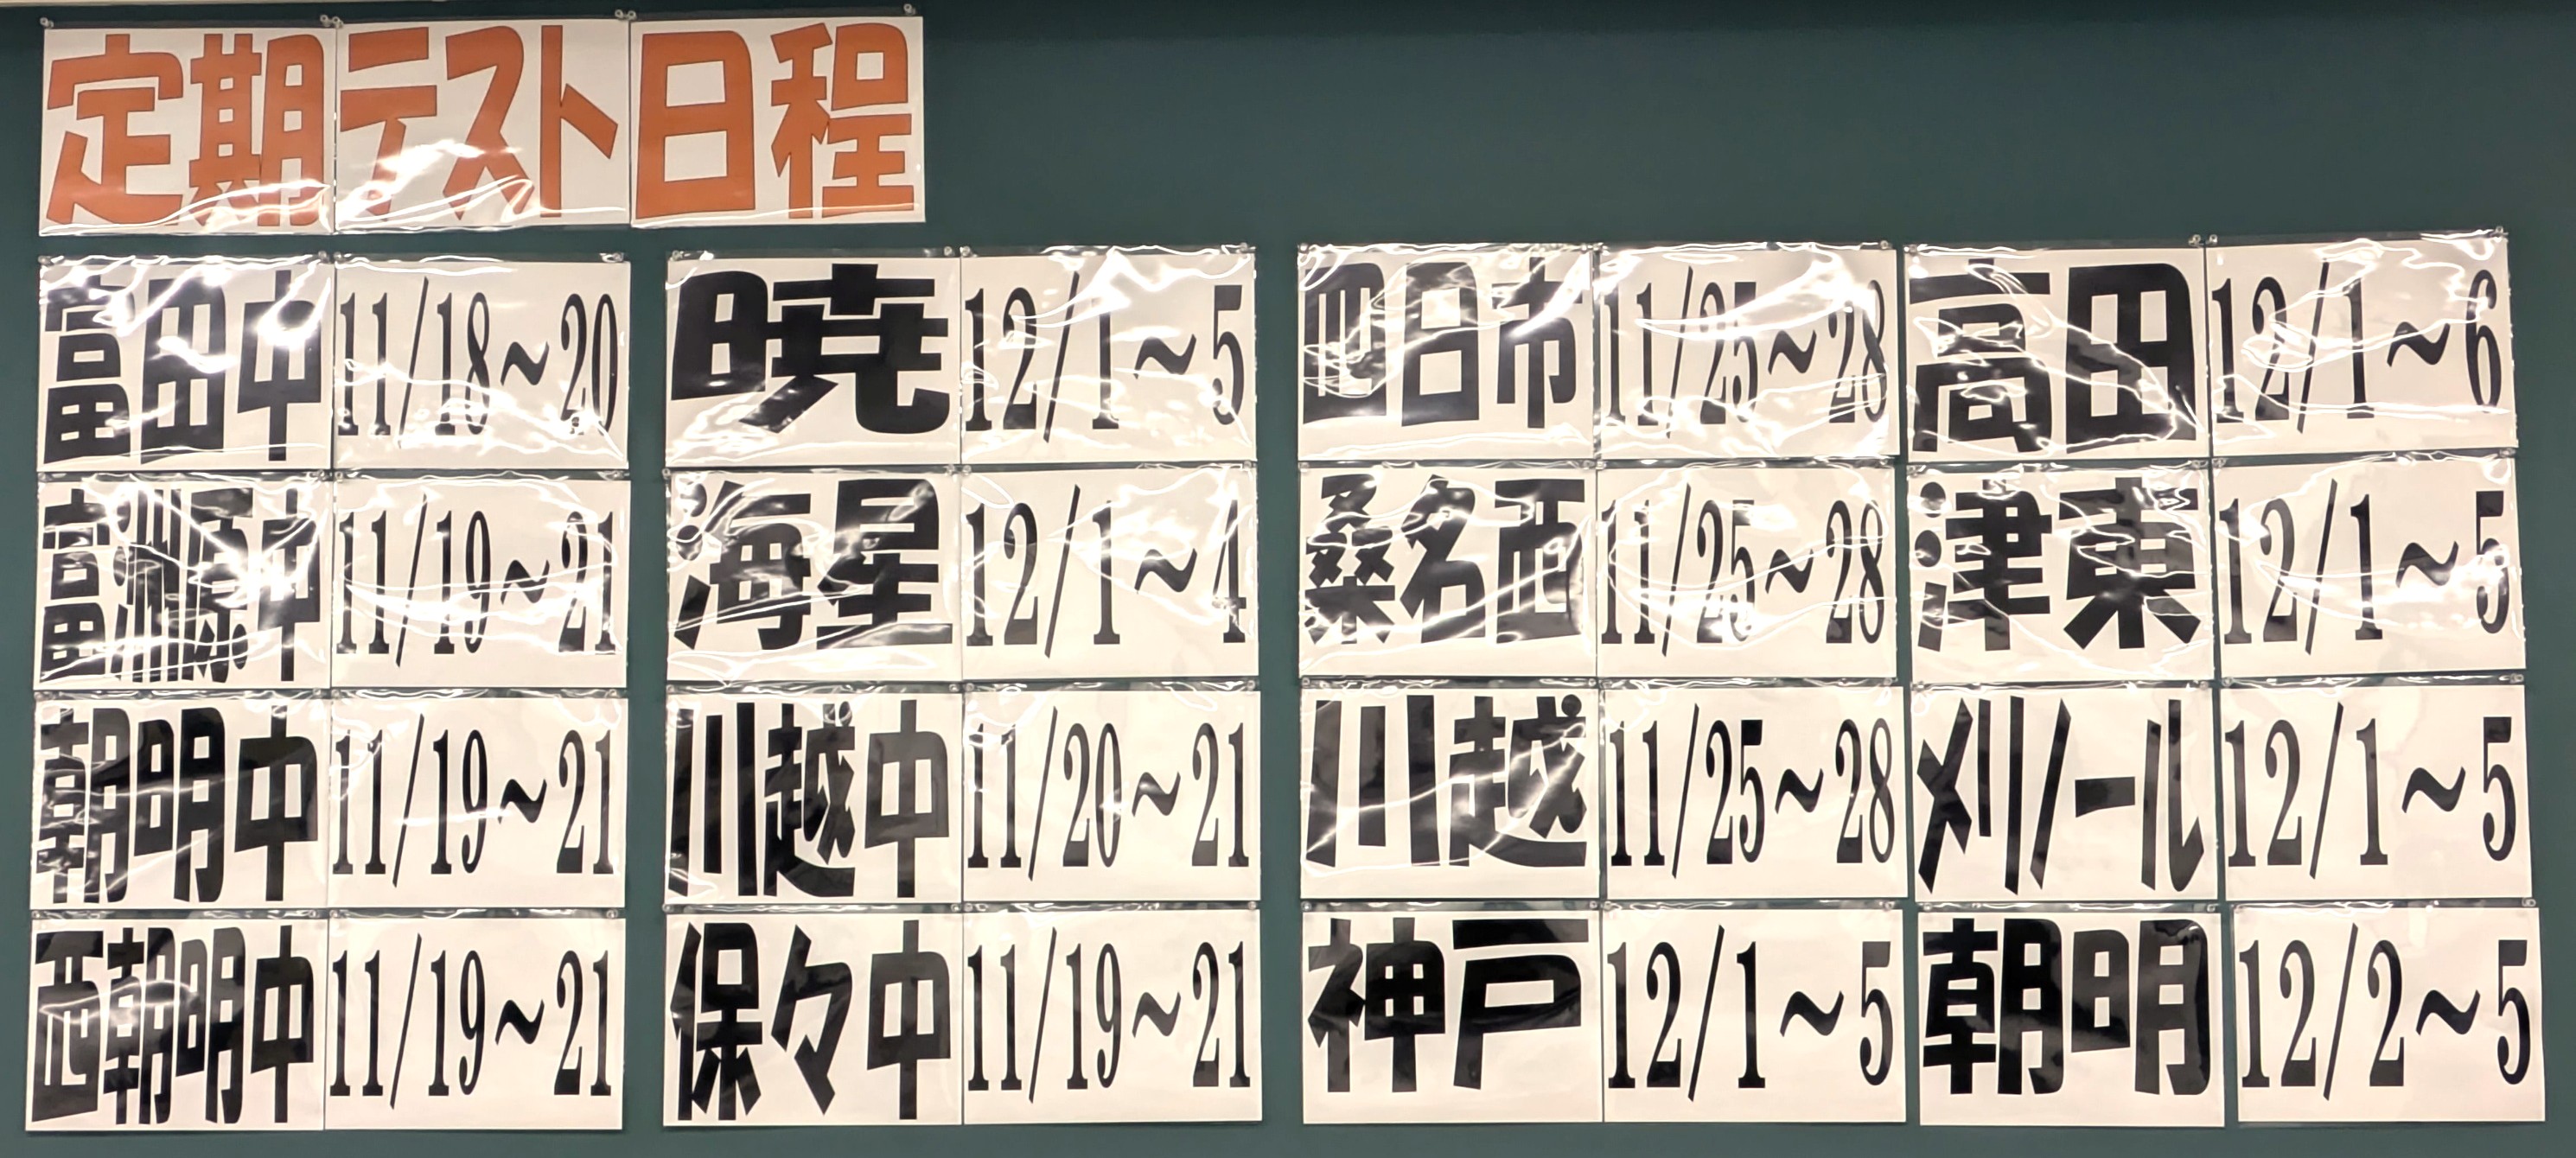 定期テスト日程
富田中 11/18~20
富洲原中 11/19~21
朝明中 11/19~21
西朝明中 11/19~21
暁 12/1~5
海星 12/1~4
川越中 11/20~21
保々中 11/19~21
四日市 11/25~28
桑名西 11/25~28
川越 11/25~28
神戸 12/1~5
高田 12/1~6
津東 12/1~5
メリノール 12/1~5
朝明 12/2~5